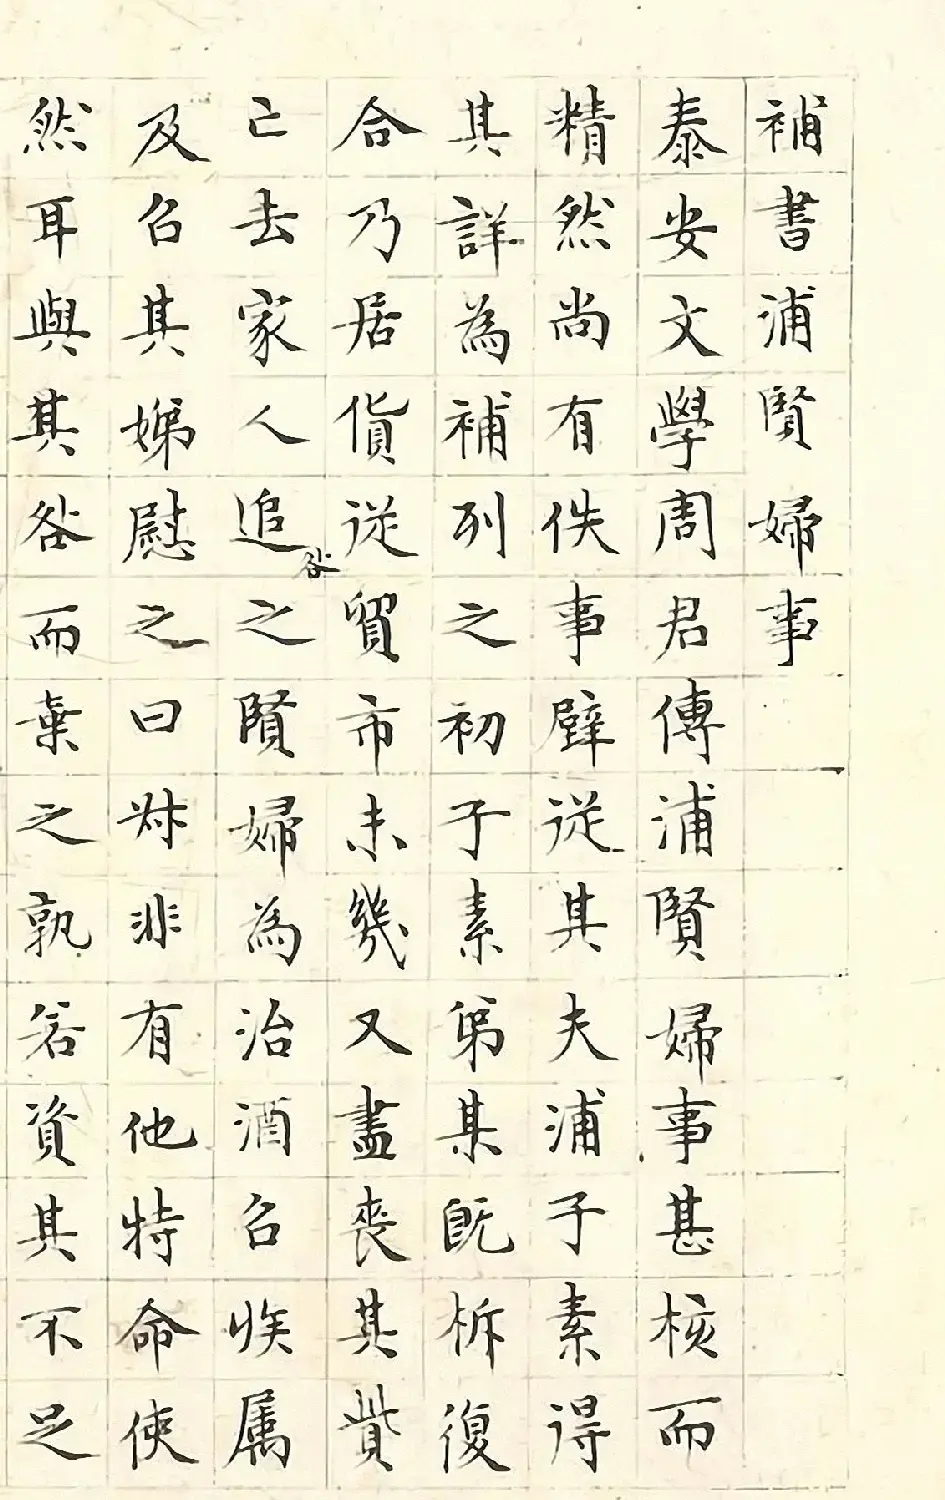 補書浦賢婦事
泰安文學周君傳浦賢婦事甚核而
精然尚有佚事璧從其夫浦子素得
其詳為補列之初子素弟某既析復
合乃居貨從貿市未幾又盡喪其貲
亡去家人追咎之賢婦為治酒召族属
及召其娣慰之曰叔非有他特命使
然耳與其咎而棄之孰若資其不足